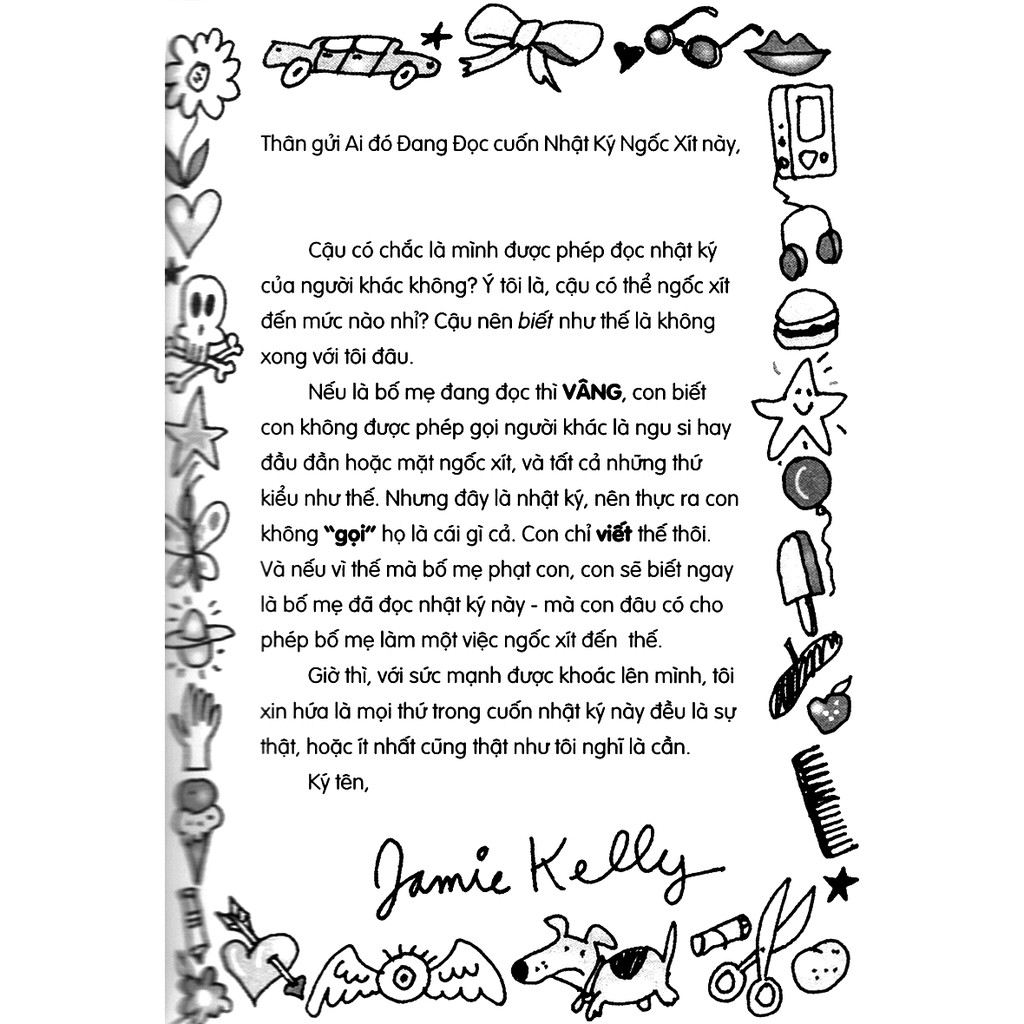 Thân gửi Ai đó Đang Đọc cuốn Nhật Ký Ngốc Xít này,
Cậu có chắc là mình được phép đọc nhật ký
của người khác không? Ý tôi là, cậu có thể ngốc xít
đến mức nào nhỉ? Cậu nên biết như thế là không
xong với tôi đâu.
Nếu là bố mẹ đang đọc thì VÂNG, con biết
con không được phép gọi người khác là ngu si hay
đầu đần hoặc mặt ngốc xít, và tất cả những thứ
kiểu như thế. Nhưng đây là nhật ký, nên thực ra con
không “gọi” họ là cái gì cả. Con chỉ viết thế thôi.
Và nếu vì thế mà bố mẹ phạt con, con sẽ biết ngay
là bố mẹ đã đọc nhật ký này - mà con đâu có cho
phép bố mẹ làm một việc ngốc xít đến thế.
Giờ thì, với sức mạnh được khoác lên mình, tôi
xin hứa là mọi thứ trong cuốn nhật ký này đều là sự
thật, hoặc ít nhất cũng thật như tôi nghĩ là cần.
Ký tên,
Jamie Kelly